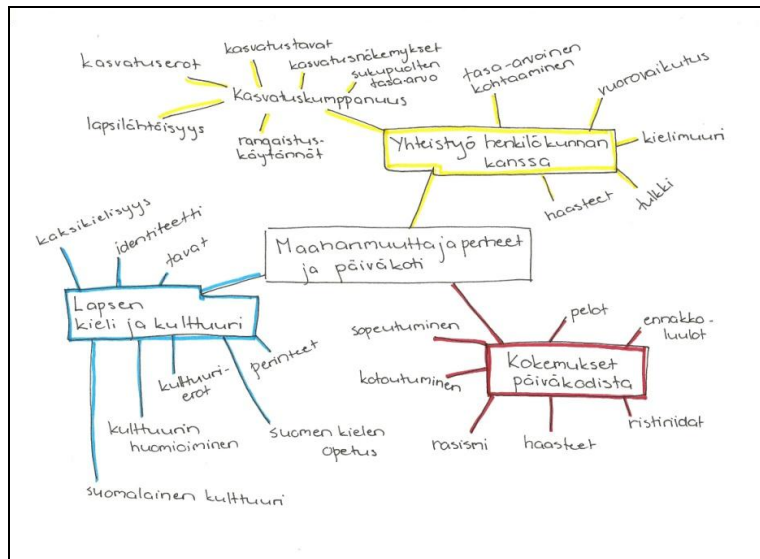 kasvatuserot
kasvatustavat
kasvatusnäkemykset
sukupuolten
tasa-arvo
Kasvatuskumppanuus
lapsilähtöisyys
rangaistus-
käytännöt
tasa-arvoinen
kohtaaminen
vuorovaikutus
Yhteistyö henkilökunnan
kanssa
kielimuuri
tulkki
haasteet
Maahanmuuttajaperheet
ja päiväkoti
kaksikielisyys
identiteetti
tavat
Lapsen
kieli ja kulttuuri
perinteet
kulttuuri-
erot
kulttuurin
huomioiminen
suomen kielen
opetus
suomalainen kulttuuri
sopeutuminen
pelot
ennakko-
luulot
Kokemukset
päiväkodista
kotoutuminen
rasismi
haasteet
ristiriidat